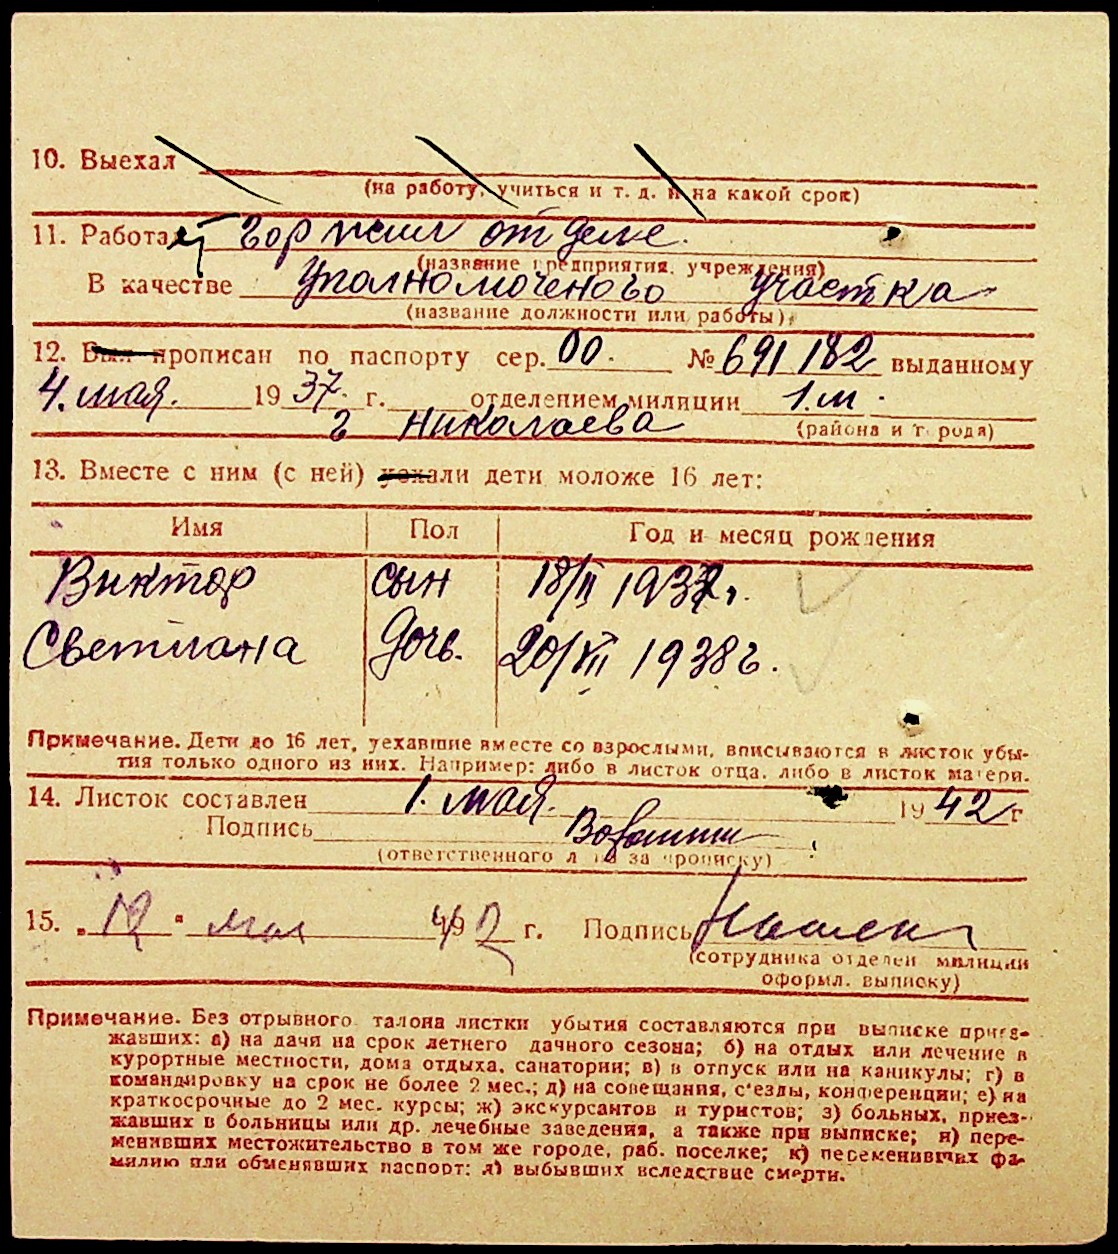 10. Выехал
(на работу, учиться и т. д. и на какой срок)
11. Работает Горжил отделе.
(название предприятия, учреждения)
В качестве Уполномоченого участка
(название должности или работы)
12. Был прописан по паспорту сер. 00. № 691182 выданному
4. мая. 1937 г. отделением милиции 1. м.
г Николаева (района и города)
13. Вместе с ним (с ней) уехали дети моложе 16 лет:
Имя Пол Год и месяц рождения
Виктор сын 18/II 1937г.
Светлана дочь. 20/XII 1938г.
Примечание. Дети до 16 лет, уехавшие вместе со взрослыми, вписываются в листок убы-
тия только одного из них. Например: либо в листок отца, либо в листок матери.
14. Листок составлен 1. мая. 1942 г
Подпись
(ответственного лица за прописку)
15. „12" мая 1942 г. Подпись
(сотрудника отделен милиции
оформл. выписку)
Примечание. Без отрывного талона листки убытия составляются при выписке приез-
жавших: а) на дачи на срок летнего дачного сезона; б) на отдых или лечение в
курортные местности, дома отдыха, санатории; в) в отпуск или на каникулы; г) в
командировку на срок не более 2 мес.; д) на совещания, с'езды, конференции; е) на
краткосрочные до 2 мес. курсы; ж) экскурсантов и туристов; з) больных, приез-
жавших в больницы или др. лечебные заведения, а также при выписке; и) пере-
менивших местожительство в том же городе, раб. поселке; к) переменивших фа-
милию или обменявших паспорт; л) выбывших вследствие смерти.